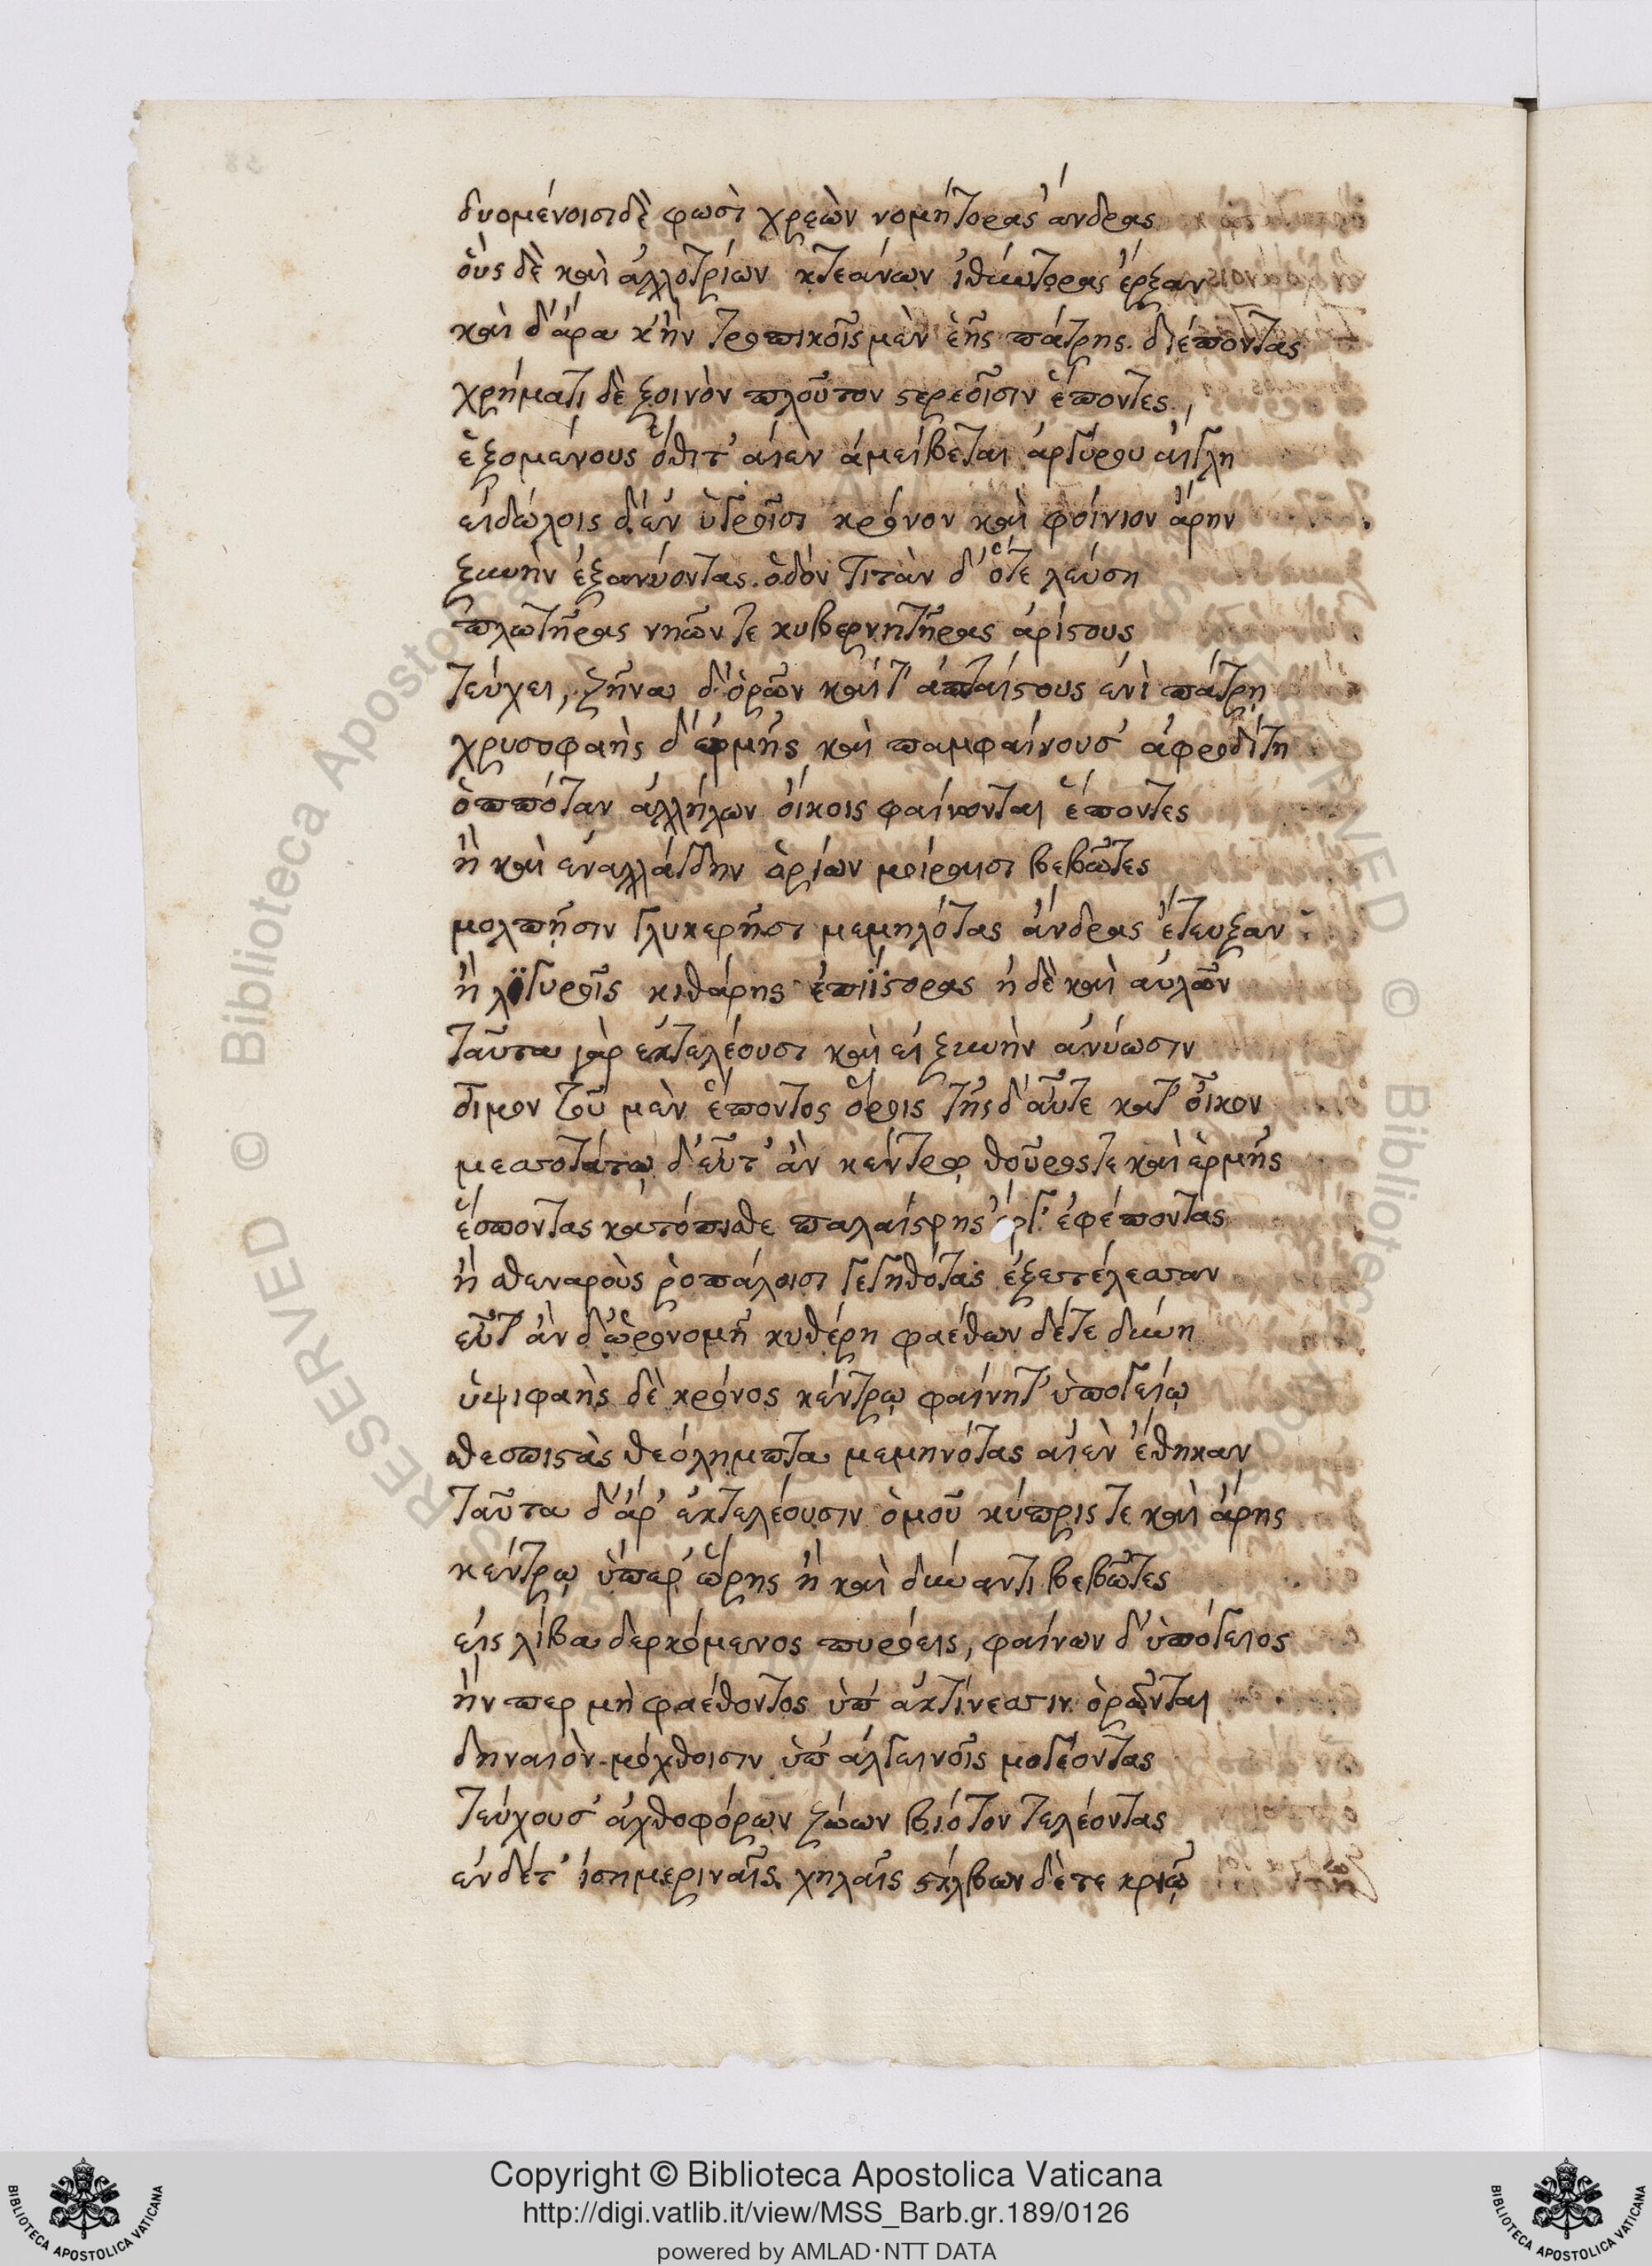 δυομένοισι δὲ φωσὶ χρεὼν νομήτορας ἄνδρας
οὓς δὲ καὶ ἀλλοτρίων κτεάνων ἰθύντορας ἔρξαν
καὶ δ' ἄρα κἢν τροπικοῖς μὲν ἑῆς πάτρης διέποντας
χρήματι δὲ ξοινὸν πλοῦτον στερεοῖσιν ἕποντες
ἑξομένους ὅθι τ' αἰὲν ἀμείβεται ἀργύρου αἴγλη
εἰδώλοις δ' ἐν ὑγροῖσι κρόνον καὶ φοίνιον ἄρην
ξυνὴν ἐξανύοντας ὁδόν τιτὰν δ' ὅτε λεύση
πλωτῆρας νηῶν τε κυβερνητῆρας ἀρίστους
τεύχει, ζῆνα δ' ὁρῶν καί τ' ἀπταίστους ἐνὶ πάτρῃ
χρυσοφαὴς δ' ἑρμῆς καὶ παμφαίνουσ' ἀφροδίτη
ὁππόταν ἀλλήλων οἴκοις φαίνονται ἕποντες
ἢ καὶ ἐναλλάγδην ὁρίων μοίραισι βεβῶτες
μολπῇσιν γλυκερῇσι μεμηλότας ἄνδρας ἔτευξαν
ἢ λιγυροῖς κιθάρης ἐπιΐστορας ἠδὲ καὶ αὐλῶν
ταῦτα γὰρ ἐκτελέουσι καὶ εἰ ξυνὴν ἀνύωσιν
οἶμον τοῦ μὲν ἕποντος ὅροις τῆς δ' αὖτε κατ' οἶκον
μεσοτάτῳ δ' εὖτ' ἂν κέντρῳ θοῦρός τε καὶ ἑρμῆς
ἕσποντας κατόπισθε παλαίστρης ἔργ' ἐφέποντας
ἢ σθεναροὺς ῥοπάλοισι γεγηθότας ἐξετέλεσαν
εὖτ' ἂν δ' ὡρονομῇ κυθέρη φαέθων δέ τε δύνῃ
ὑψιφαὴς δὲ κρόνος κέντρῳ φαίνητ' ὑπογείῳ
θεσπιστὰς θεόλημπτα μεμηνότας αἰὲν ἔθηκαν
ταῦτα δ' ἄρ' ἐκτελέουσιν ὁμοῦ κύπρις τε καὶ ἄρης
κέντρῳ ὑπὲρ ὥρης ἢ καὶ δύναντι βεβῶτες
εἰς λίβα δερκόμενος πυρόεις, φαίνων δ' ὑπόγειος
ἤν περ μὴ φαέθοντος ὑπ' ἀκτίνεσσιν ὁρῶνται
δηναιὸν μόχθοισιν ὑπ' ἀλγεινοῖς μογέοντας
τεύχουσ' ἀχθοφόρων ζώων βιότον τελέοντας
ἐν δέ τ' ἰσημεριναῖς χηλαῖς στίλβων δέ τε κριῷ
Copyright © Biblioteca Apostolica Vaticana
http://digi.vatlib.it/view/MSS_Barb.gr.189/0126
powered by AMLAD·NTT DATA